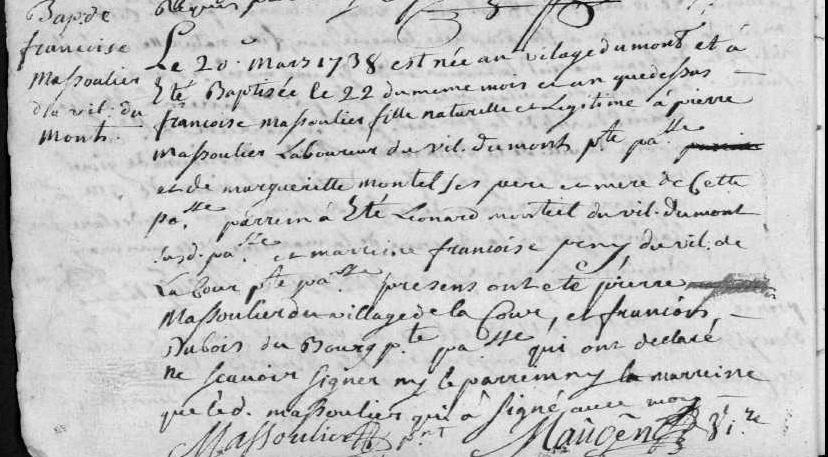 Bap. de
francoise
Massoulier
du vil. du
Mont.
Le 20. Mars 1738 est née au vilage du mont et à
Eté Baptisée le 22 du meme mois et an que dessus
francoise massoulier fille naturelle et Legitime à pierre
massoulier Laboureur du vil. du mont pte. pa.sse
et de marguerette montel ses pere et mere de Cette
pa.sse parrein à Eté Léonard monteil du vil. du mont
susd. pa.sse et marreine francoise peny du vil. de
La Cour pte pa.sse presens ont eté pierre
Massoulier du village de la Cour, et francois
Dubois du Bourg p.te pa.sse qui ont declaré
ne scavoir signer ny le parrein ny la marreine
que led. massoulier qui à signé avec moy
Massoulier p.nt Maugên vi.re